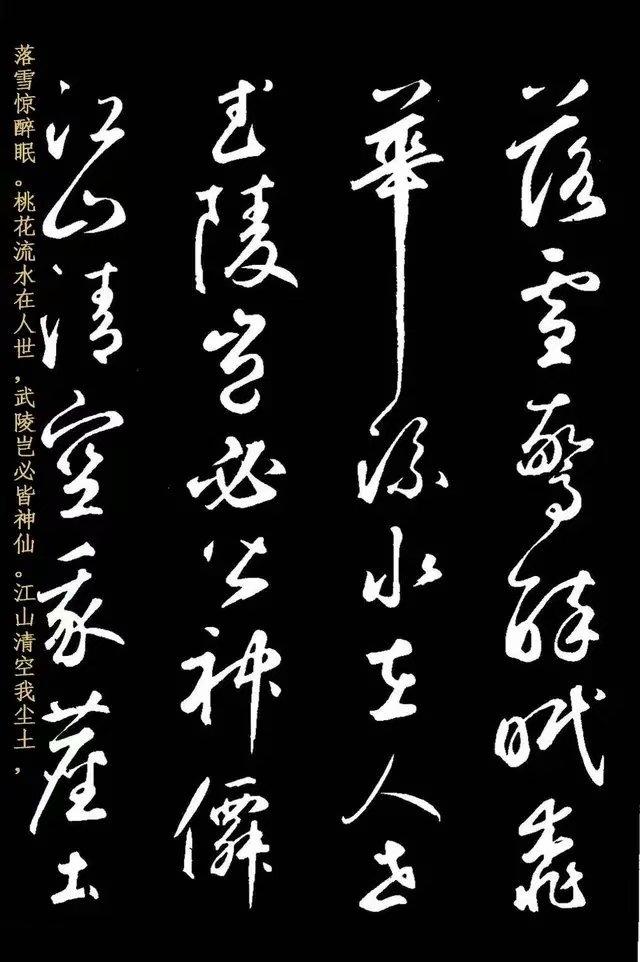 落雪驚醉眠桃
華流水在人世
武陵豈必皆神僊
江山清空我塵土
落雪惊醉眠。桃花流水在人世，武陵岂必皆神仙。江山清空我尘土，